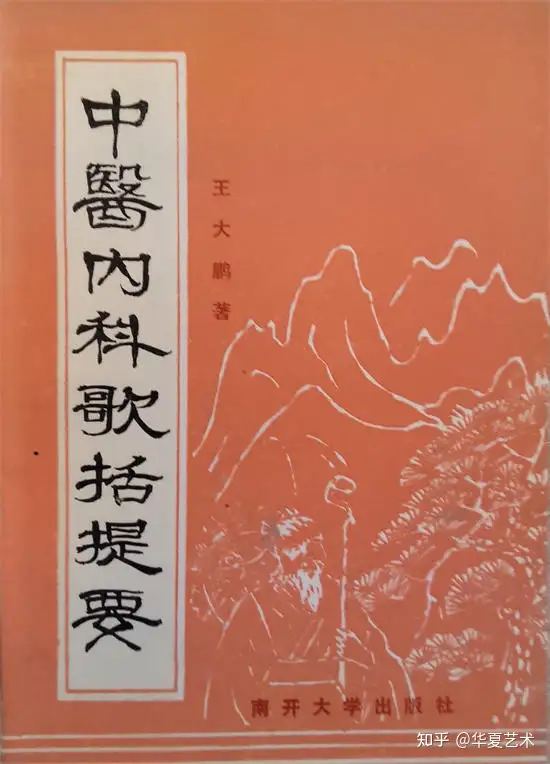 中醫内科歌括提要
王大鹏著
南开大学出版社
知乎 @华夏艺术